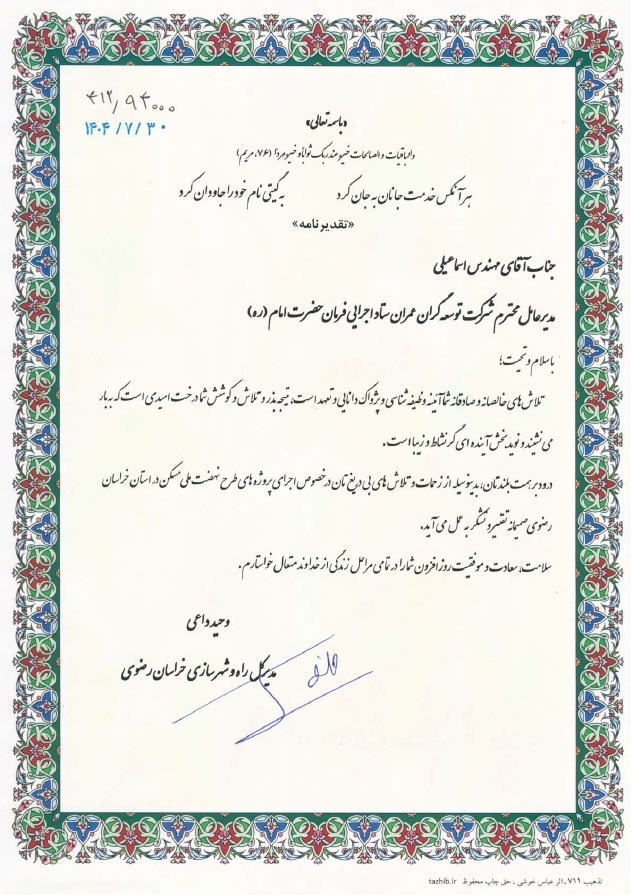 ۴۱۲/۹۴۰۰۰
۱۴۰۴/۷/۳۰
«باسمه تعالی»
والباقیات والصالحات خیر عند ربک ثوابا و خیر مردا (۷۶، مریم)
هر آنکس خدمت جانان به جان کرد به گیتی نام خود را جاودان کرد
«تقدیرنامه»
جناب آقای مهندس اسماعیلی
مدیرعامل محترم شرکت توسعه گران عمران ستاد اجرایی فرمان حضرت امام (ره)
با سلام و تحیت؛
تلاش های خالصانه و صادقانه شما آئینه وظیفه شناسی و پژواک دانایی و تعهد است، نتیجه بذر و تلاش و کوشش شما درخت امیدی است که به بار
می نشند و نویدبخش آینده ای گر نشاط و زیبا است.
درود بر همت بلندتان، بدینوسیله از زحمات و تلاش های بی دریغ تان در خصوص اجرای پروژه های طرح نهضت ملی مسکن در استان خراسان
رضوی صمیمانه تقدیر و تشکر به عمل می آید.
سلامت، سعادت و موفقیت روز افزون شما را در تمامی مراحل زندگی از خداوند متعال خواستارم.
وحید داعی
مدیرکل راه و شهرسازی خراسان رضوی
تذهیب ۷۱۱ـ اثر عباس خوشی ـ حق چاپ محفوظ tazhib.ir